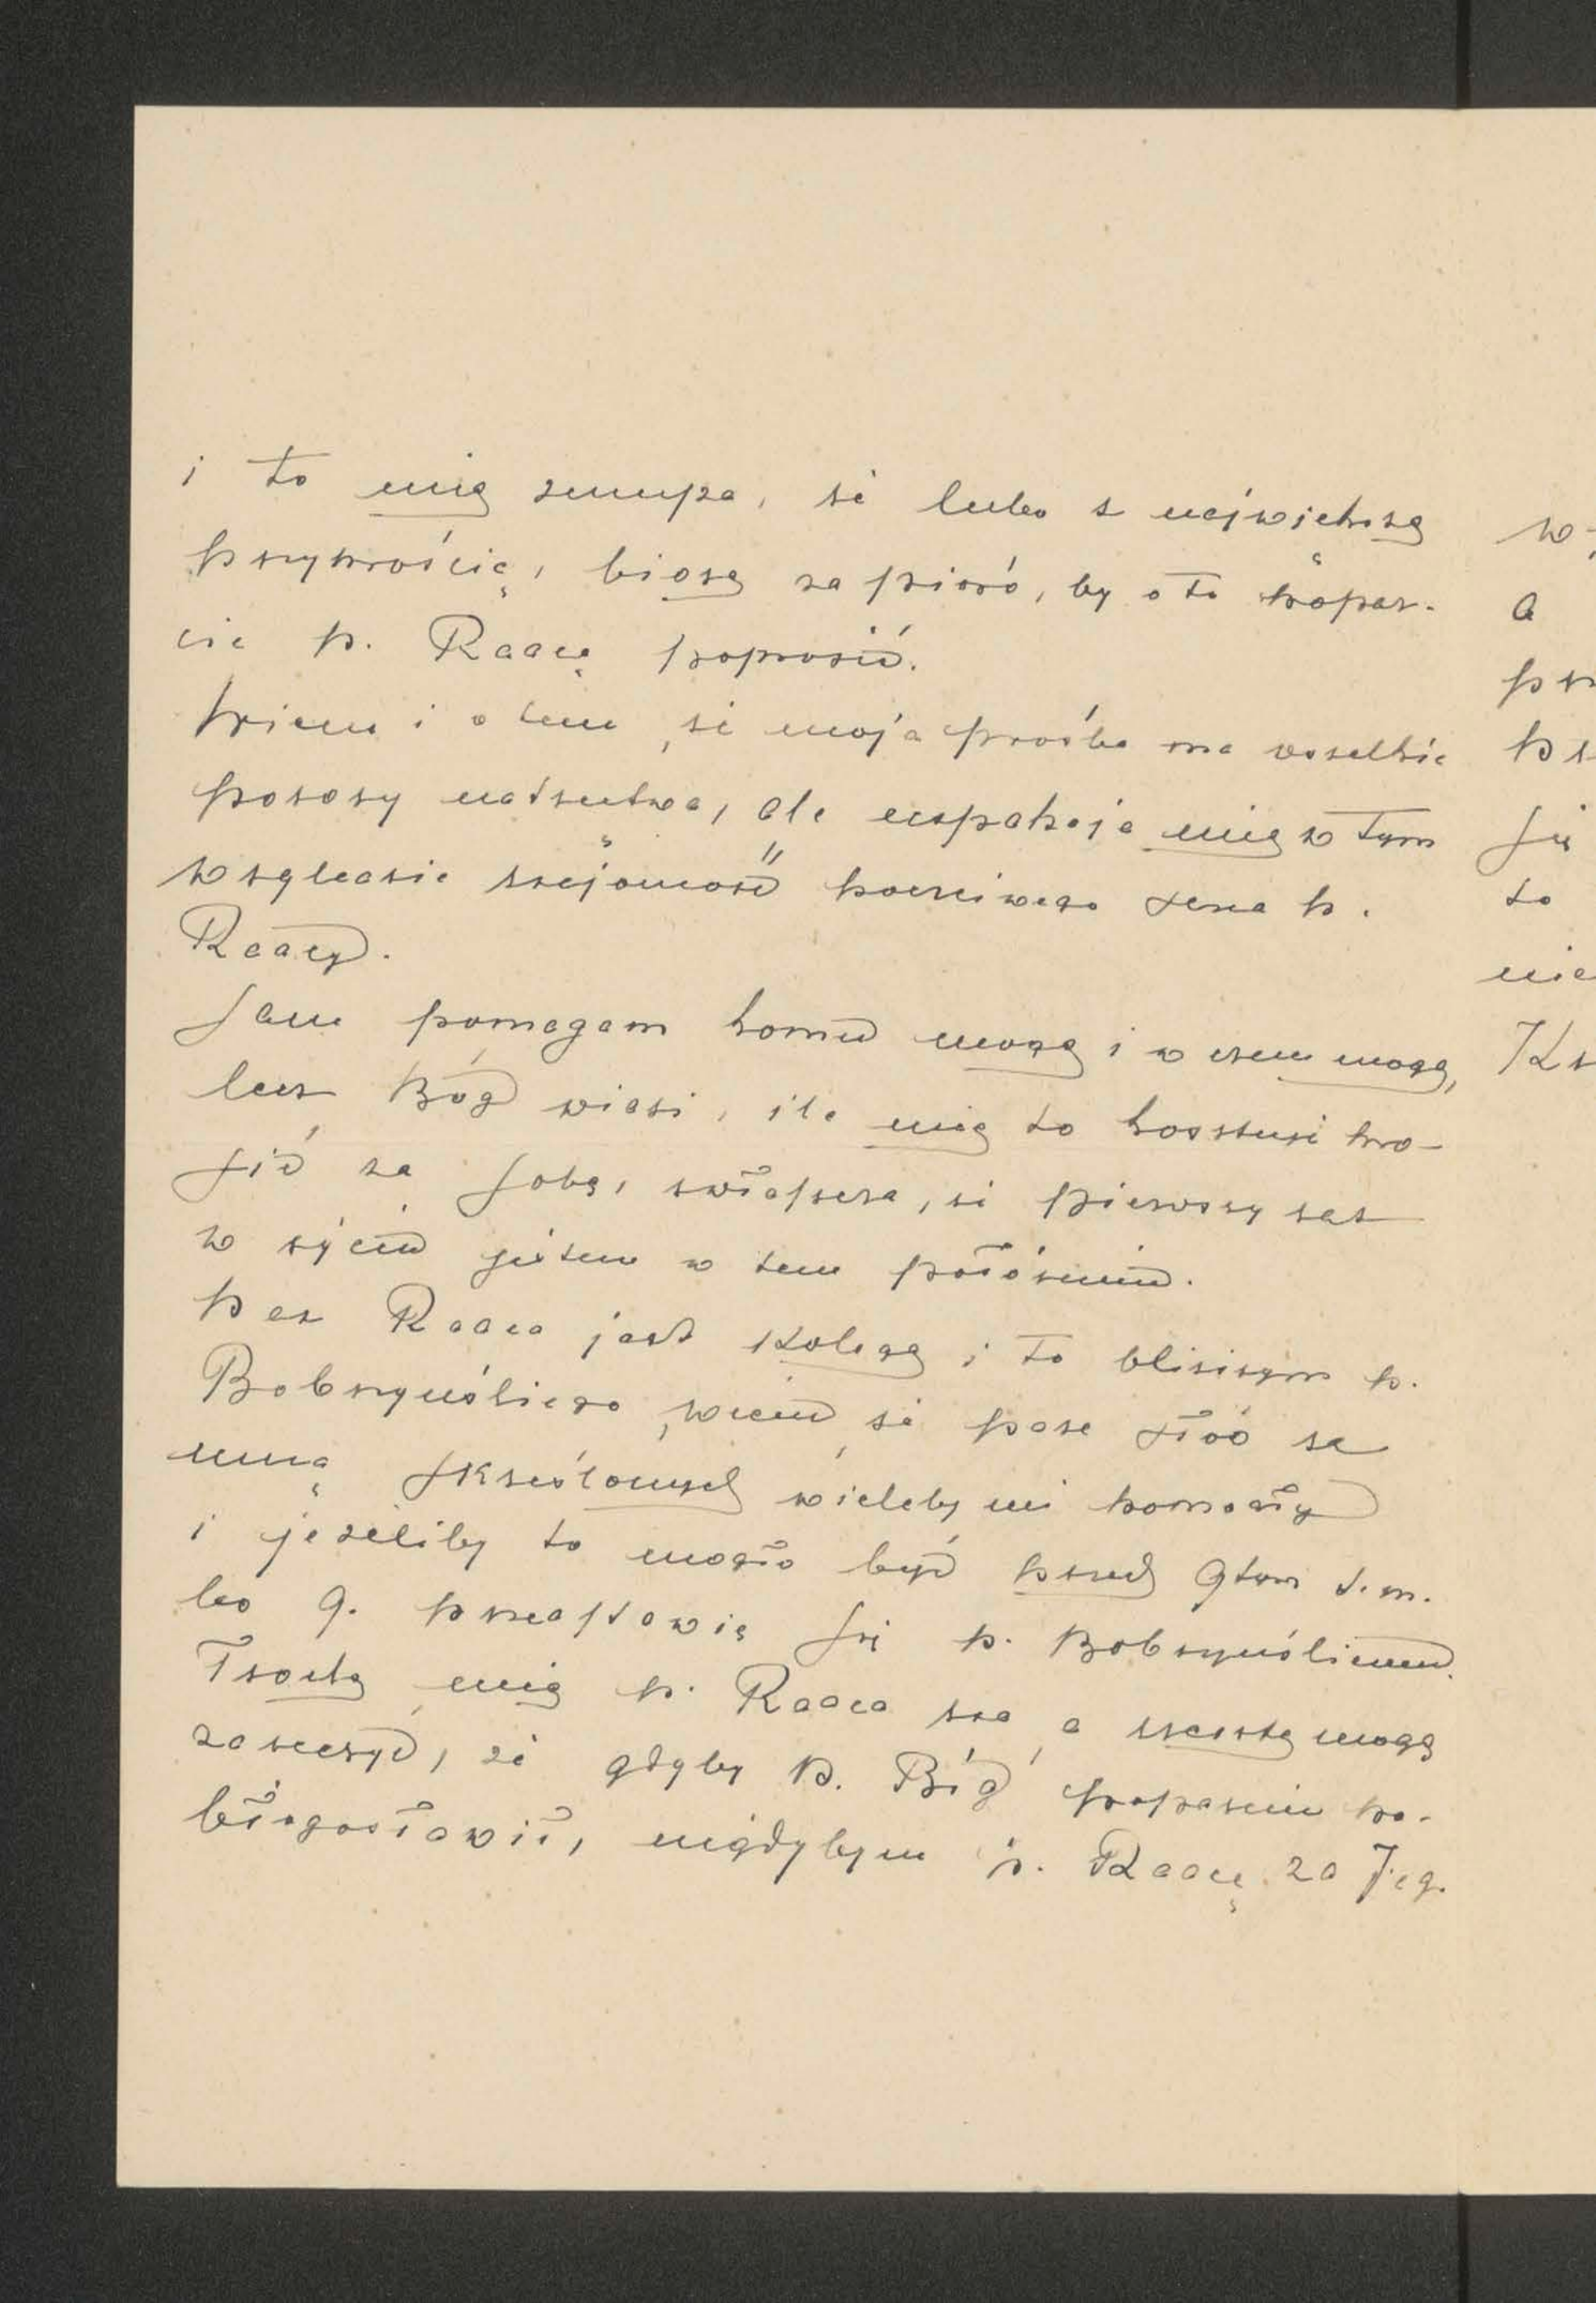 i to mię zmusza, że lubo z największą
przykrością, biorę za pióro, by o to popar-
cie p. Radcę poprosić.
Wiem i o tem, że moja prośba ma wszelkie
pozory natręctwa, ale uspakaja mię w tym
względzie znajomość poczciwego serca p.
Radcy.
Sam pomagam komu mogę i w czem mogę,
lecz Bóg widzi, ile mię to kosztuje pro-
sić za sobą, zwłaszcza, że pierwszy raz
w życiu jestem w tem położeniu.
Pan Radca jest kolegą i to bliższym p.
Bobrzyńskiego, wiem, że parę słów za
mną skreślonych wieleby mi pomogły
i jeżeliby to mogło być przed 9tym t. m.
bo 9. przedstawię się p. Bobrzyńskiemu.
Zna a resztą mogę
zaręczyć, że gdyby P. Bóg poparciu po-
błogosławił, nigdybym p. Radcę za Jeg.
w
a
się
to
nie